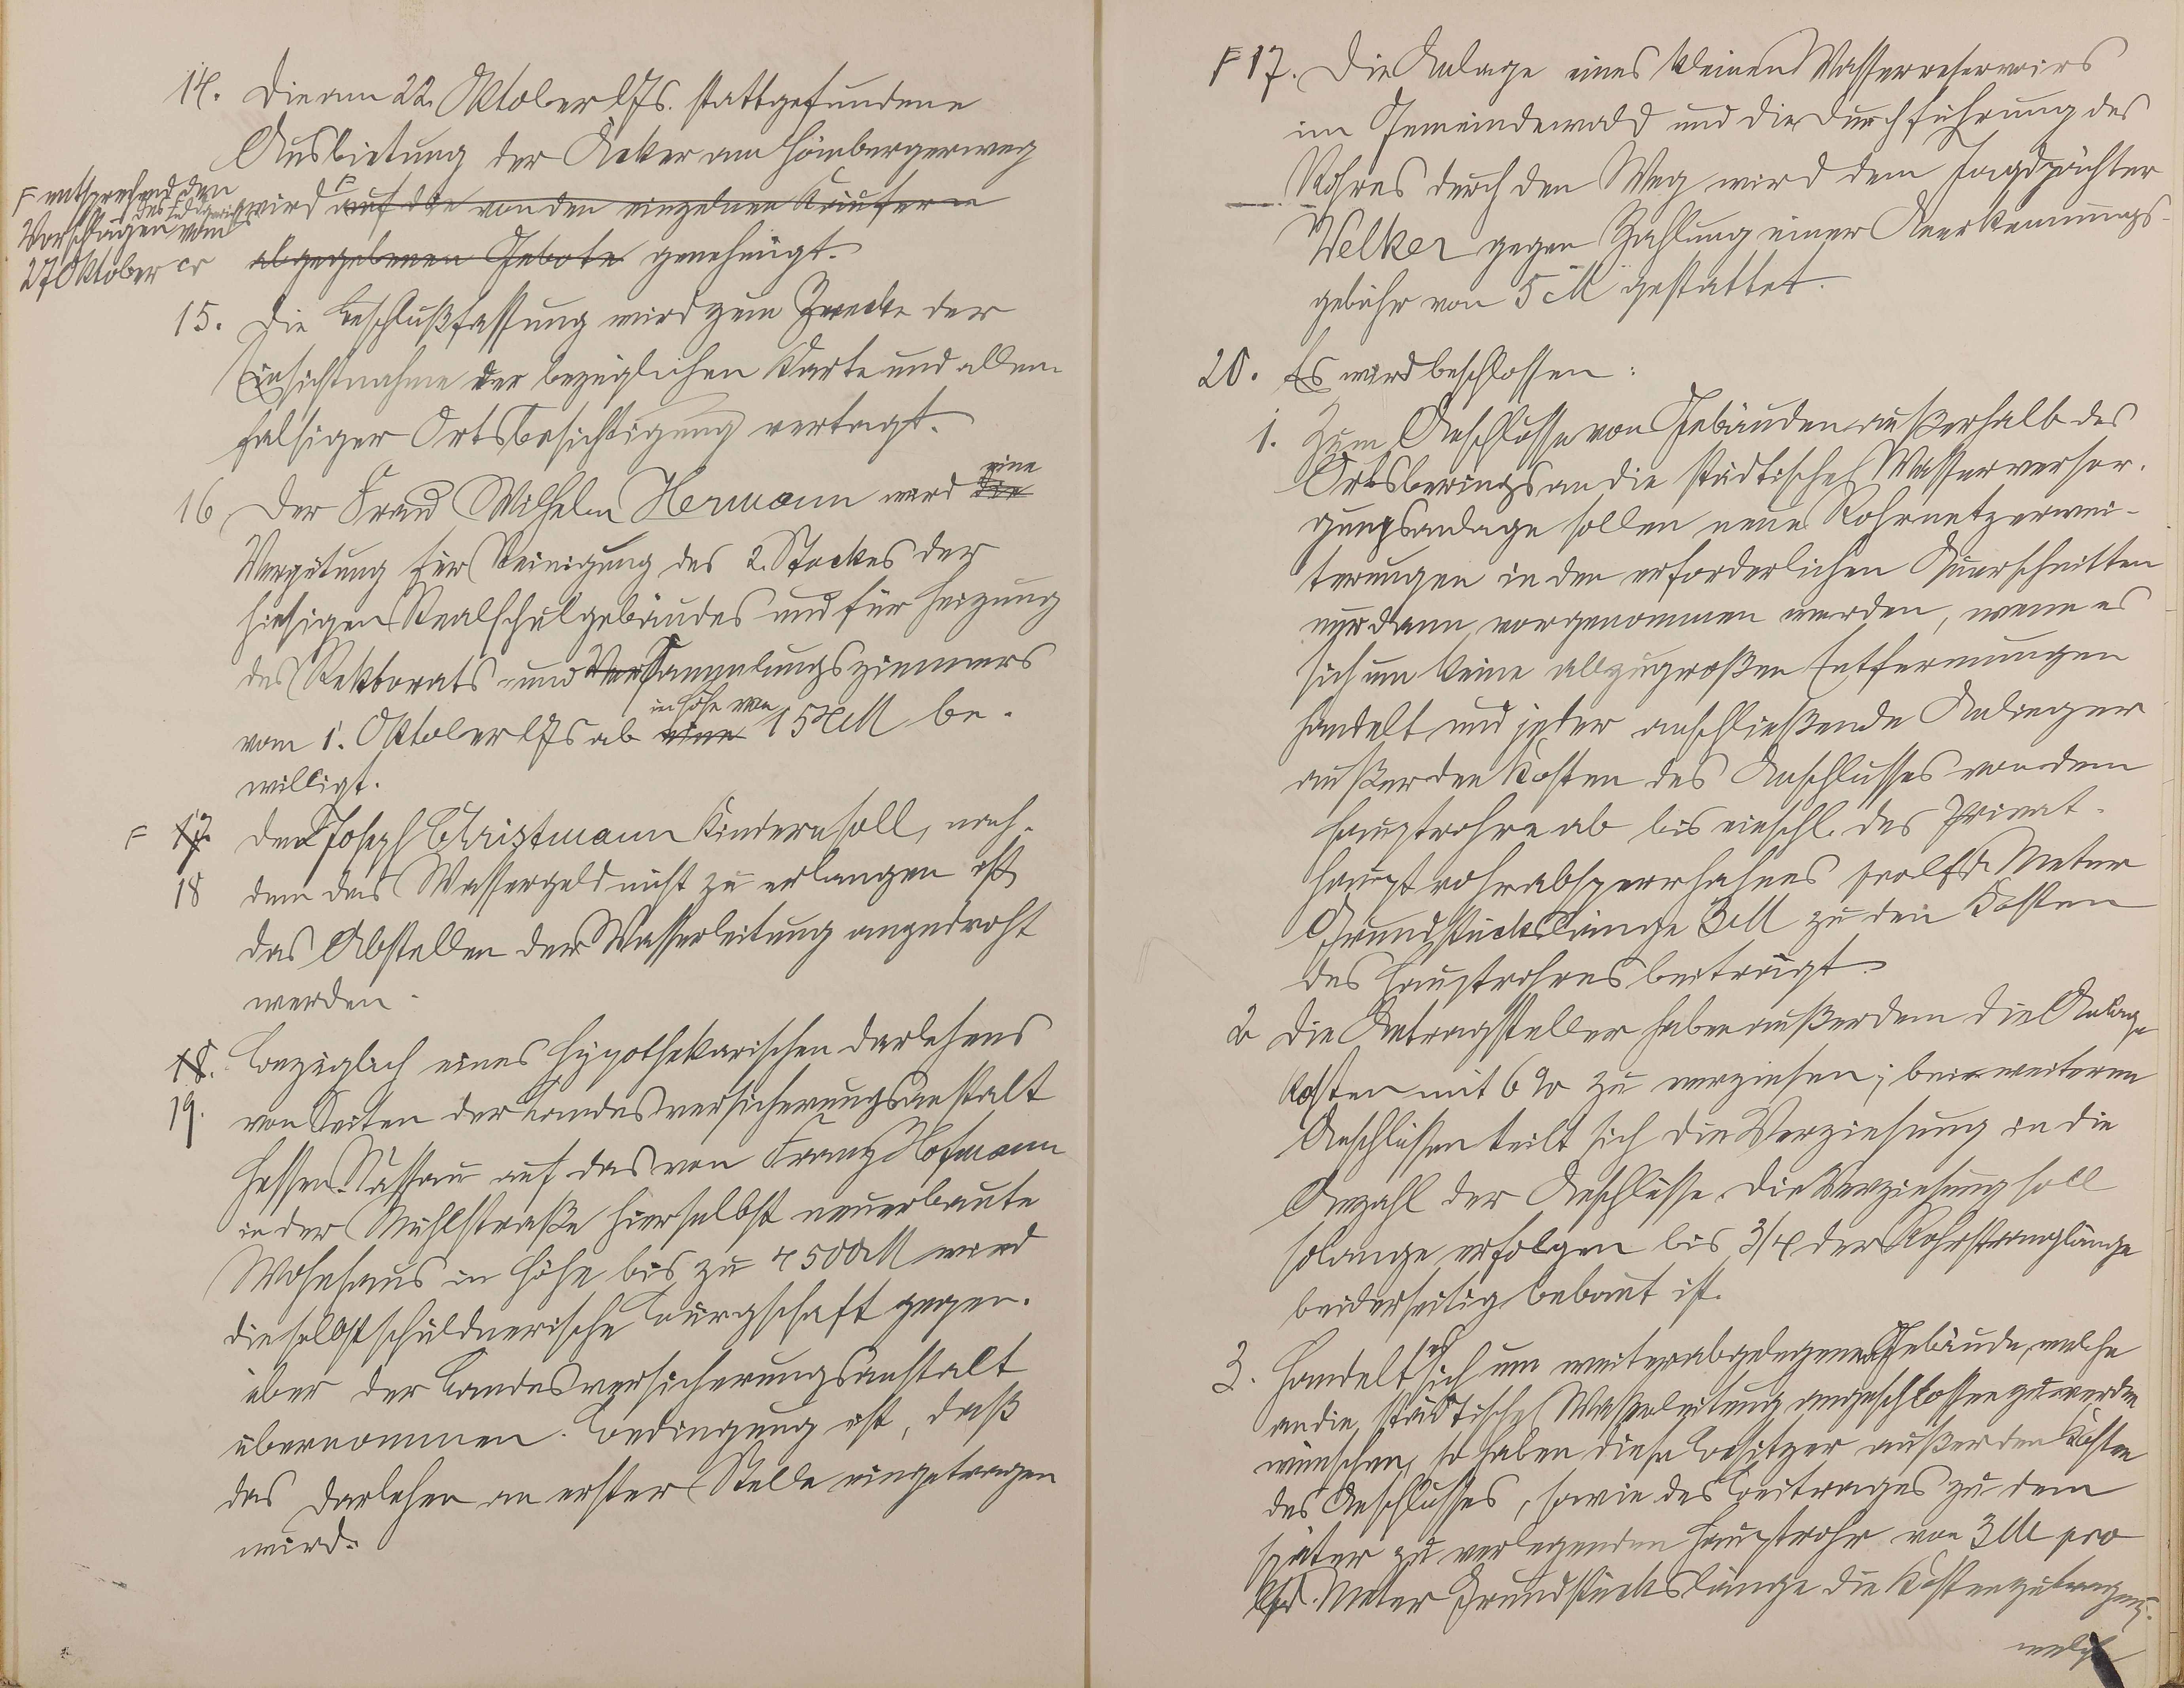 14. Die am 22. Oktober lfs. stattgefundene
Ausbietung der Äcker am Hömbergerweg
F entsprechend den
Vorschlägen des Feldgerichts vom
27 Oktober cr
wird F auf die von den einzelnen Käufern
abgegebenen Gebote genehmigt.
15. Die Beschlußfassung wird zum Zwecke der
Einsichtnahme der bezüglichen Karte und allen-
falsiger Ortsbesichtigung vertagt.
16 Der Frau Wilhelm Hermann wird die eine
Vergütung für Reinigung des 2. Stockes des
hiesigen Realschulgebäudes und für Heizung
des Rektorats- und Versammlungszimmers
vom 1. Oktober lfs ab eine in Höhe von 154 M be-
willigt.
F 17. Den Joseph Christmann Kindern soll, nach-
18 dem das Wassergeld nicht zu erlangen ist,
das Abstellen der Wasserleitung angedroht
werden.
18. Bezüglich eines hypothekarischen Darlehens
19. von Seiten der Landesversicherungsanstalt
Hessen-Nassau auf das von Franz Hofmann
in der Mühlstraße hierselbst neuerbaute
Wohnhaus in Höhe bis zu 4500 M wird
die selbstschuldnerische Bürgschaft gegen-
über der Landesversicherungsanstalt
übernommen. Bedingung ist, daß
das Darlehen an erster Stelle eingetragen
wird.
F 17. Die Anlage eines kleinen Wasserreservoirs
im Gemeindewald und die Durchführung des
Rohres durch den Weg wird dem Jagdpächter
Welker gegen Zahlung einer Anerkennungs-
gebühr von 5 M gestattet.
20. Es wird beschlossen:
1. Zum Anschlusse von Gebäuden außerhalb des
Ortsberings an die städtische Wasserversor-
gungsanlage sollen neue Rohrnetzerwei-
terungen in den erforderlichen Querschnitten
nur dann vorgenommen werden, wenn es
sich um keine allzugroßen Entfernungen
handelt und jeder anschließende Anlieger
außer den Kosten des Anschlusses von dem
Hauptrohre ab bis einschl. des Privat-
hauptrohrabsperrhahnes pro lfd. Meter
Grundstückslänge 3 M zu den Kosten
des Hauptrohres beiträgt.
2 Die Antragsteller haben außerdem die Anlage-
kosten mit 6 % zu verzinsen; bei weiteren
Anschlüssen teilt sich die Verzinsung in die
Anzahl der Anschlüsse. Die Verzinsung soll
solange erfolgen bis 3/4 der Rohrstranglänge
beiderseitig bebaut ist.
3. Handelt es sich um weiter abgelegene Gebäude, welche
an die städtische Wasserleitung angeschlossen zu werden
wünschen, so haben diese Besitzer außer den Kosten
des Anschlusses, sowie des Beitrages zu dem
später zu verlegenden Hauptrohr von 3 M pro
lfd. Meter Grundstückslänge die Kosten zu tragen,
welche